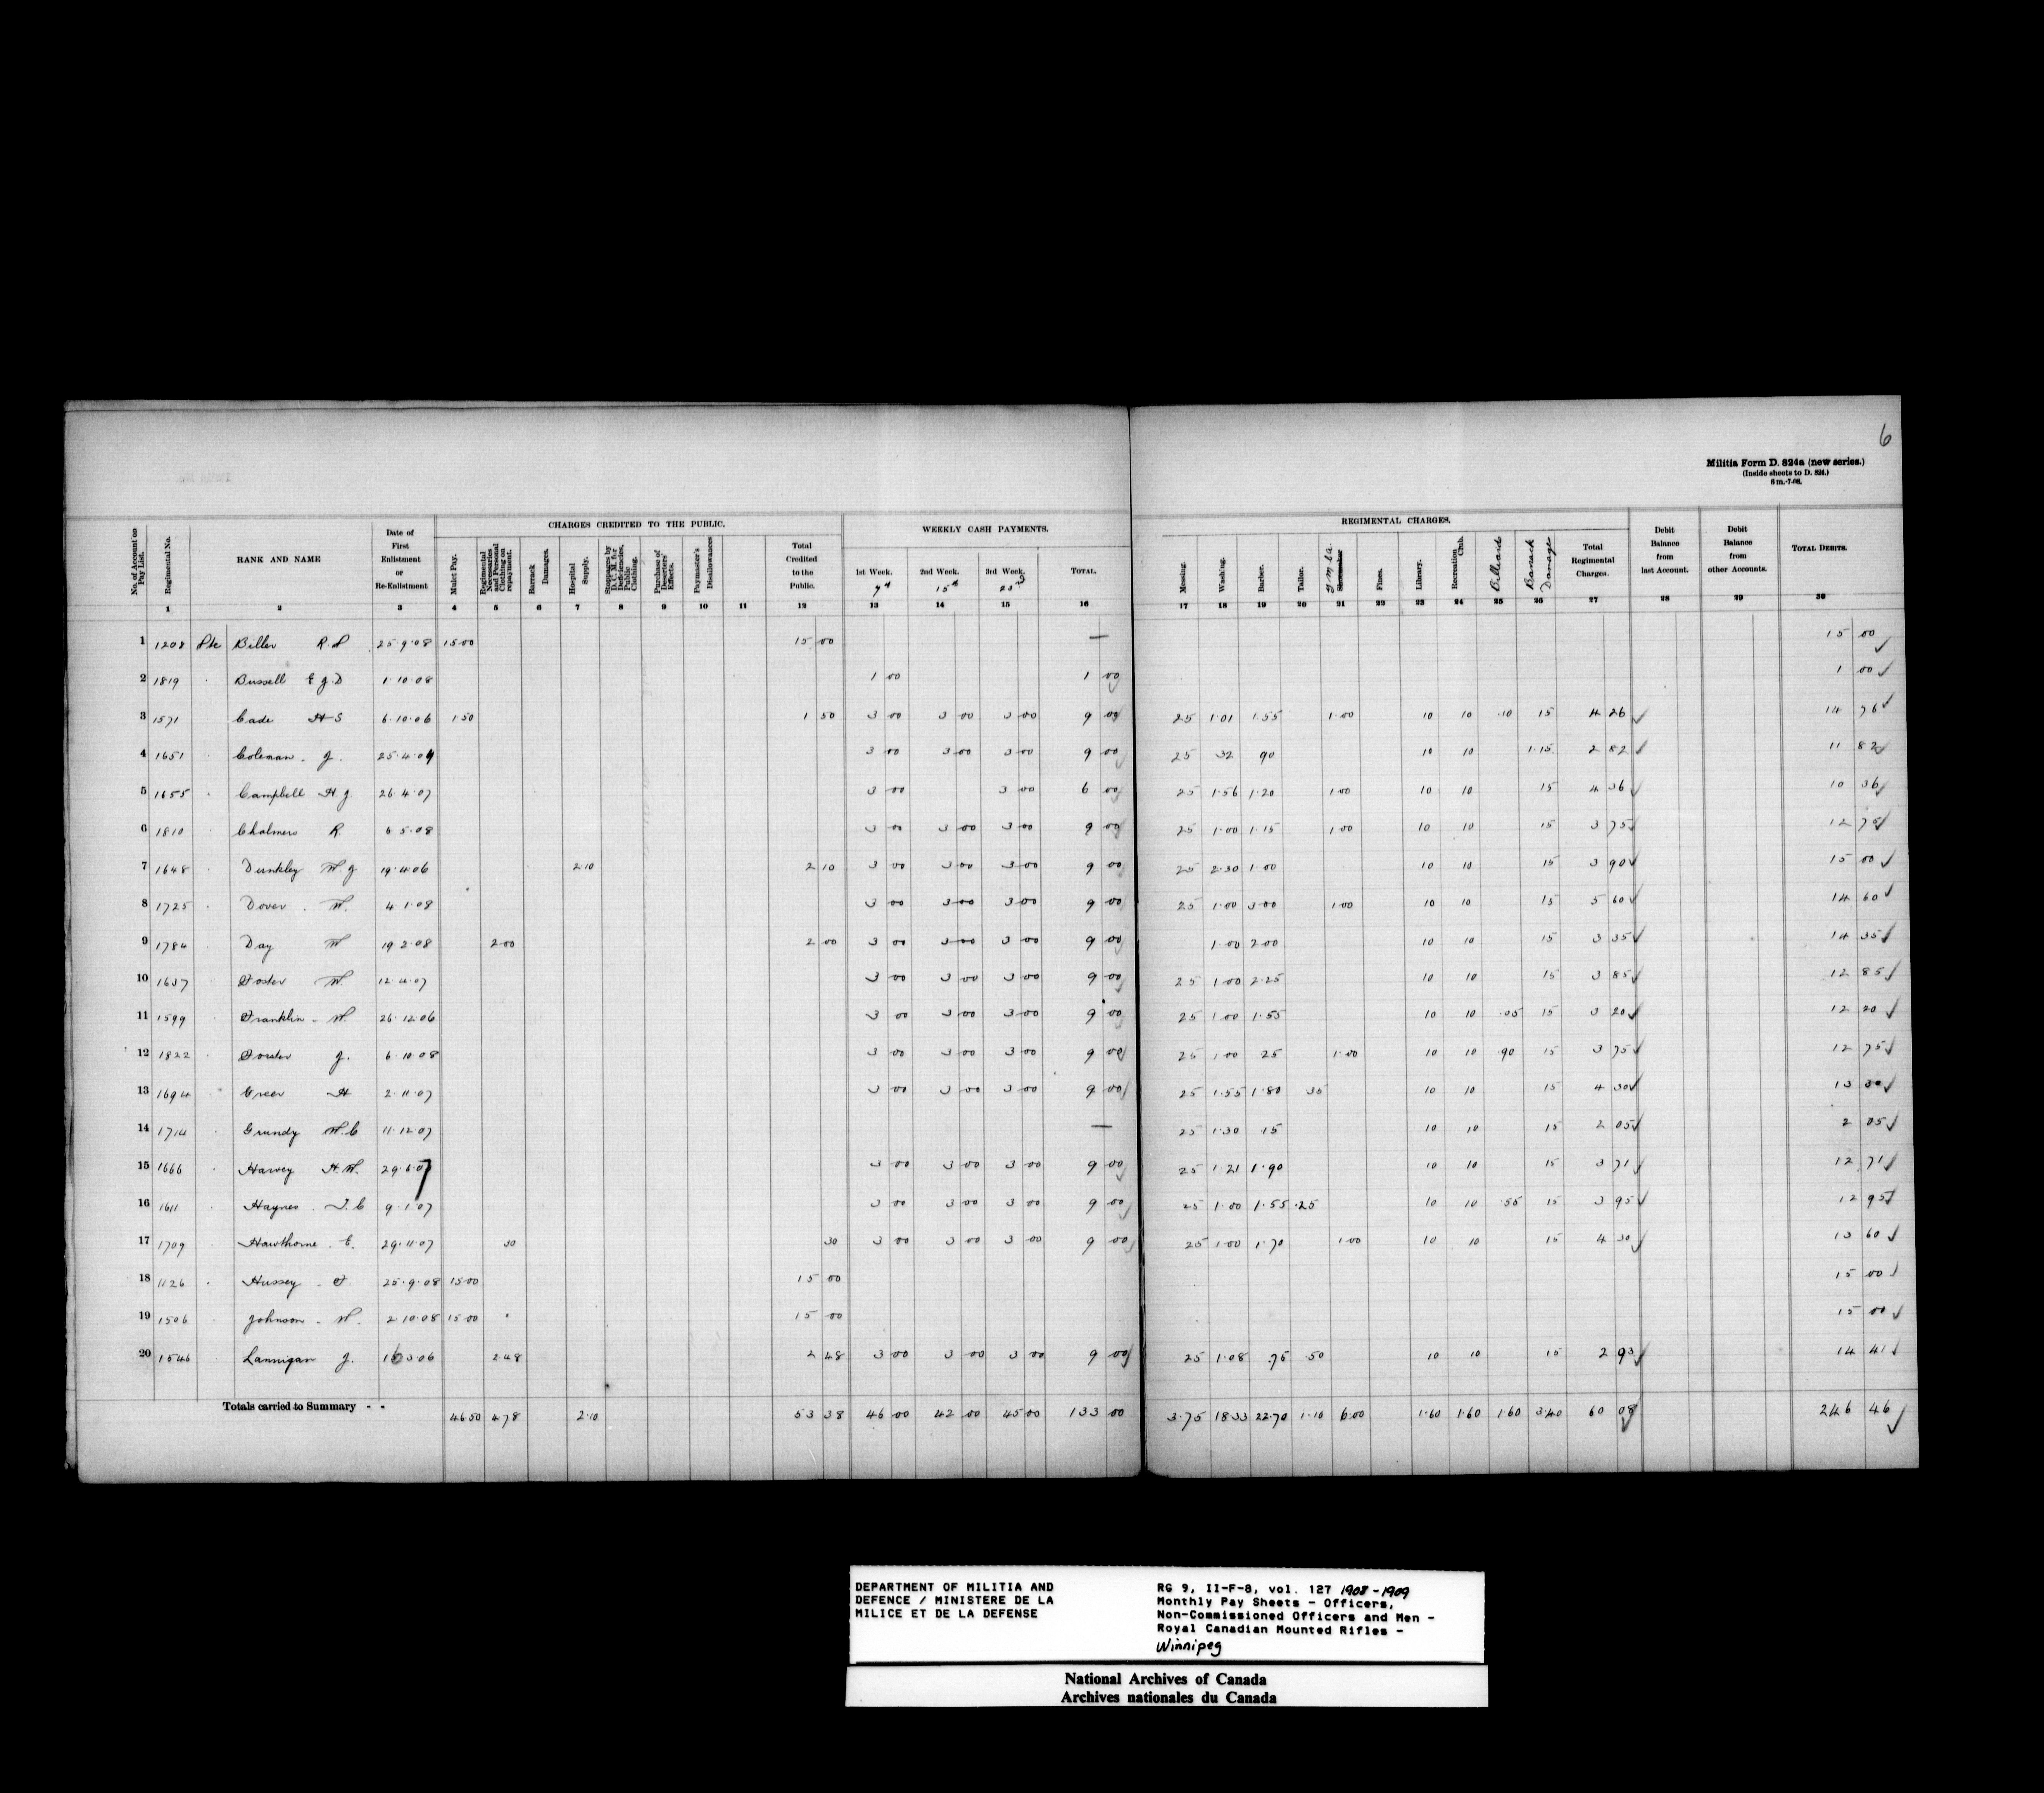 6
Militia Form D. 824a (new series.)
(Inside sheets to D. 824.)
6 m.-7-08.
CHARGES CREDITED TO THE PUBLIC. WEEKLY CASH PAYMENTS. REGIMENTAL CHARGES.
No. of Account on Pay List. Regimental No. RANK AND NAME Date of First Enlistment or Re-Enlistment Mulct Pay. Regimental Necessaries and Personal Clothing on repayment. Barrack Damages. Hospital Supply. Stoppages by D. C. M. for Deficiencies, Public Clothing. Purchase of Deserters' Effects. Paymaster's Disallowances Total Credited to the Public. 1st Week. 2nd Week. 3rd Week. TOTAL. Messing. Washing. Barber. Tailor. Shoemaker Fines. Library. Recreation Club. Billiards Barrack Damages Total Regimental Charges. Debit Balance from last Account. Debit Balance from other Accounts. TOTAL DEBITS.
1 2 3 4 5 6 7 8 9 10 11 12 13 14 15 16 17 18 19 20 21 22 23 24 25 26 27 28 29 30
1 1208 Pte Biller R.S 25 9 08 15 00 15 00 — 15 00
2 1819 Bussell E J D 1 10 08 1 00 1 00 1 00
3 1571 Cade H S 6 10 06 1 50 1 50 3 00 3 00 3 00 9 00 25 1.01 1.55 1.00 10 10 .10 15 4 26 14 76
4 1651 Coleman J. 25.4.07 3 00 3 00 3 00 9 00 25 32 90 10 10 1.15 2 82 11 82
5 1655 Campbell H J. 26.4.07 3 00 3 00 6 00 25 1.56 1.20 1.00 10 10 15 4 36 10 36
6 1810 Chalmers R. 6 5.08 3 00 3 00 3 00 9 00 25 1.00 1.15 1.00 10 10 15 3 75 12 75
7 1648 Dunkley W. J 19.4.06 2 10 2 10 3 00 3 00 3 00 9 00 25 2.30 1.00 10 10 15 3 90 15 00
8 1725 Dover W. 4 1.08 3 00 3 00 3 00 9 00 25 1.00 3.00 1.00 10 10 15 5 60 14 60
9 1784 Day W 19 2.08 2 00 2 00 3 00 3 00 3 00 9 00 1.00 2.00 10 10 15 3 35 14 35
10 1637 Foster W. 12.4.07 3 00 3 00 3 00 9 00 25 1.00 2.25 10 10 15 3 85 12 85
11 1599 Franklin W. 26.12.06 3 00 3 00 3 00 9 00 25 1.00 1.55 10 10 .05 15 3 20 12 20
12 1822 Forster J. 6.10.08 3 00 3 00 3 00 9 00 25 1.00 25 1.00 10 10 .90 15 3 75 12 75
13 1694 Greer H 2.11.07 3 00 3 00 3 00 9 00 25 1.55 1.80 35 10 10 15 4 30 13 30
14 1714 Grundy W.C 11.12.07 — 25 1.30 .15 10 10 15 2 05 2 05
15 1666 Harvey H.W. 29.6.07 3 00 3 00 3 00 9 00 25 1.21 1.90 10 10 15 3 71 12 71
16 1611 Haynes J. C 9.1.07 3 00 3 00 3 00 9 00 25 1.00 1.55 .25 10 10 .55 15 3 95 12 95
17 1709 Hawthorne E. 29.11.07 30 30 3 00 3 00 3 00 9 00 25 1.00 1.70 1.00 10 10 15 4 30 13 60
18 1126 Hussey F. 25.9.08 15.00 15 00 15 00
19 1506 Johnson W. 2 10.08 15 00 15 00 15 00
20 1546 Lannigan J. 16 3.06 2 48 2 48 3 00 3 00 3 00 9 00 25 1.08 .75 .50 10 10 15 2 93 14 41
Totals carried to Summary - - 46.50 4.78 2.10 53 38 46 00 42 00 45 00 133 00 3.75 18.33 22.70 1.10 6.00 1.60 1.60 1.60 3.40 60 08 246 46
DEPARTMENT OF MILITIA AND
DEFENCE / MINISTERE DE LA
MILICE ET DE LA DEFENSE
RG 9, II-F-8, vol. 127 1908-1909
Monthly Pay Sheets - Officers,
Non-Commissioned Officers and Men -
Royal Canadian Mounted Rifles -
Winnipeg
National Archives of Canada
Archives nationales du Canada